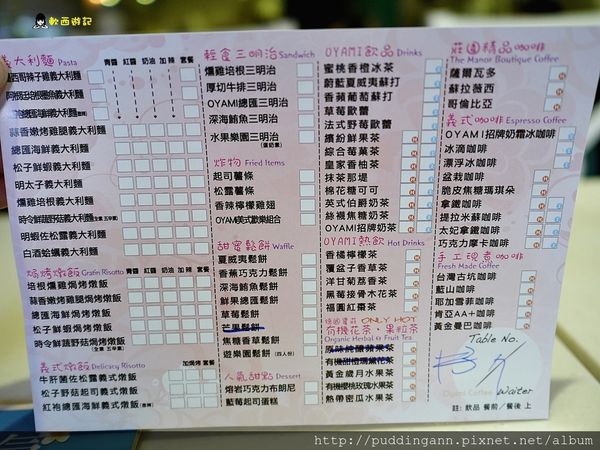 軟西遊記
義大利麵 Pasta
青醬 紅醬 奶油 加辣 套餐
墨西哥辣子雞義大利麵
蒜香嫩烤雞腿義大利麵
總匯海鮮義大利麵
松子鮮蝦義大利麵
明太子義大利麵
燻雞培根義大利麵
時令鮮蔬野菇義大利麵
明蝦佐松露義大利麵
白酒蛤蠣義大利麵
焗烤燉飯 Gratin Risotto
青醬 紅醬 奶油 加辣 套餐
培根燻雞焗烤燉飯
蒜香嫩雞焗烤燉飯
總匯海鮮焗烤燉飯
松子鮮蝦焗烤燉飯
時令鮮蔬野菇焗烤燉飯
義式燉飯 Delicacy Risotto
加焗烤 套餐
牛肝菌佐松露義式燉飯
松子野菇起司義式燉飯
紅袍總匯海鮮義式燉飯
輕食三明治 Sandwich
燻雞培根三明治
厚切牛排三明治
OYAMI總匯三明治
深海鮪魚三明治
水果樂園三明治
炸物 Fried Items
起司薯條
松露薯條
香辣檸檬雞翅
OYAMI美式歡樂組合
甜蜜鬆餅 Waffle
夏威夷鬆餅
香蕉巧克力鬆餅
深海鮪魚鬆餅
鮮果總匯鬆餅
草莓鬆餅
芒果鬆餅
焦糖香草鬆餅
遊樂園鬆餅 (四人份)
人氣甜點 Dessert
熔岩巧克力布朗尼
藍莓起司蛋糕
OYAMI飲品 Drinks
蜜桃香橙冰茶
蔚藍夏威夷蘇打
香蘋葡萄蘇打
草莓歐蕾
法式野莓歐蕾
繽紛鮮果茶
綜合莓菓茶
皇家香柚茶
抹茶那堤
棉花糖可可
英式伯爵奶茶
絲襪焦糖奶茶
OYAMI招牌奶茶
OYAMI熱飲 Hot Drinks
香橘檸檬茶
覆盆子香草茶
洋甘菊荔香茶
黑莓接骨木花茶
福圓紅棗茶
德國農莊 ONLY HOT
有機花茶、果粒茶
Organic Herbal & Fruit Tea
黃金歲月水果茶
有機櫻桃玫瑰水果茶
熱帶密瓜水果茶
莊園精品咖啡
The Manor Boutique Coffee
薩爾瓦多
蘇拉薇西
哥倫比亞
義式咖啡 Espresso Coffee
OYAMI招牌奶霜冰咖啡
冰滴咖啡
漂浮冰咖啡
盆栽咖啡
脆皮焦糖瑪琪朵
拿鐵咖啡
提拉米蘇咖啡
太妃拿鐵咖啡
巧克力摩卡咖啡
手工現煮咖啡
Fresh Made Coffee
台灣古坑咖啡
藍山咖啡
耶加雪菲咖啡
肯亞AA+咖啡
黃金曼巴咖啡
Table No.
Oyami Coffee Waiter
註: 飲品 餐前／餐後 上
http://puddingann.pixnet.net/album